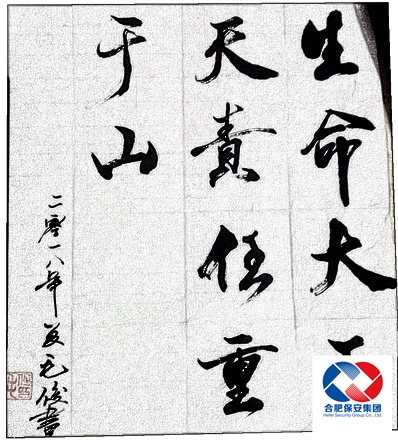 生命大于
天責任重
于山
二零一八年夏毛俊書
合肥保安集团
Hefei Security Group Co., Ltd.